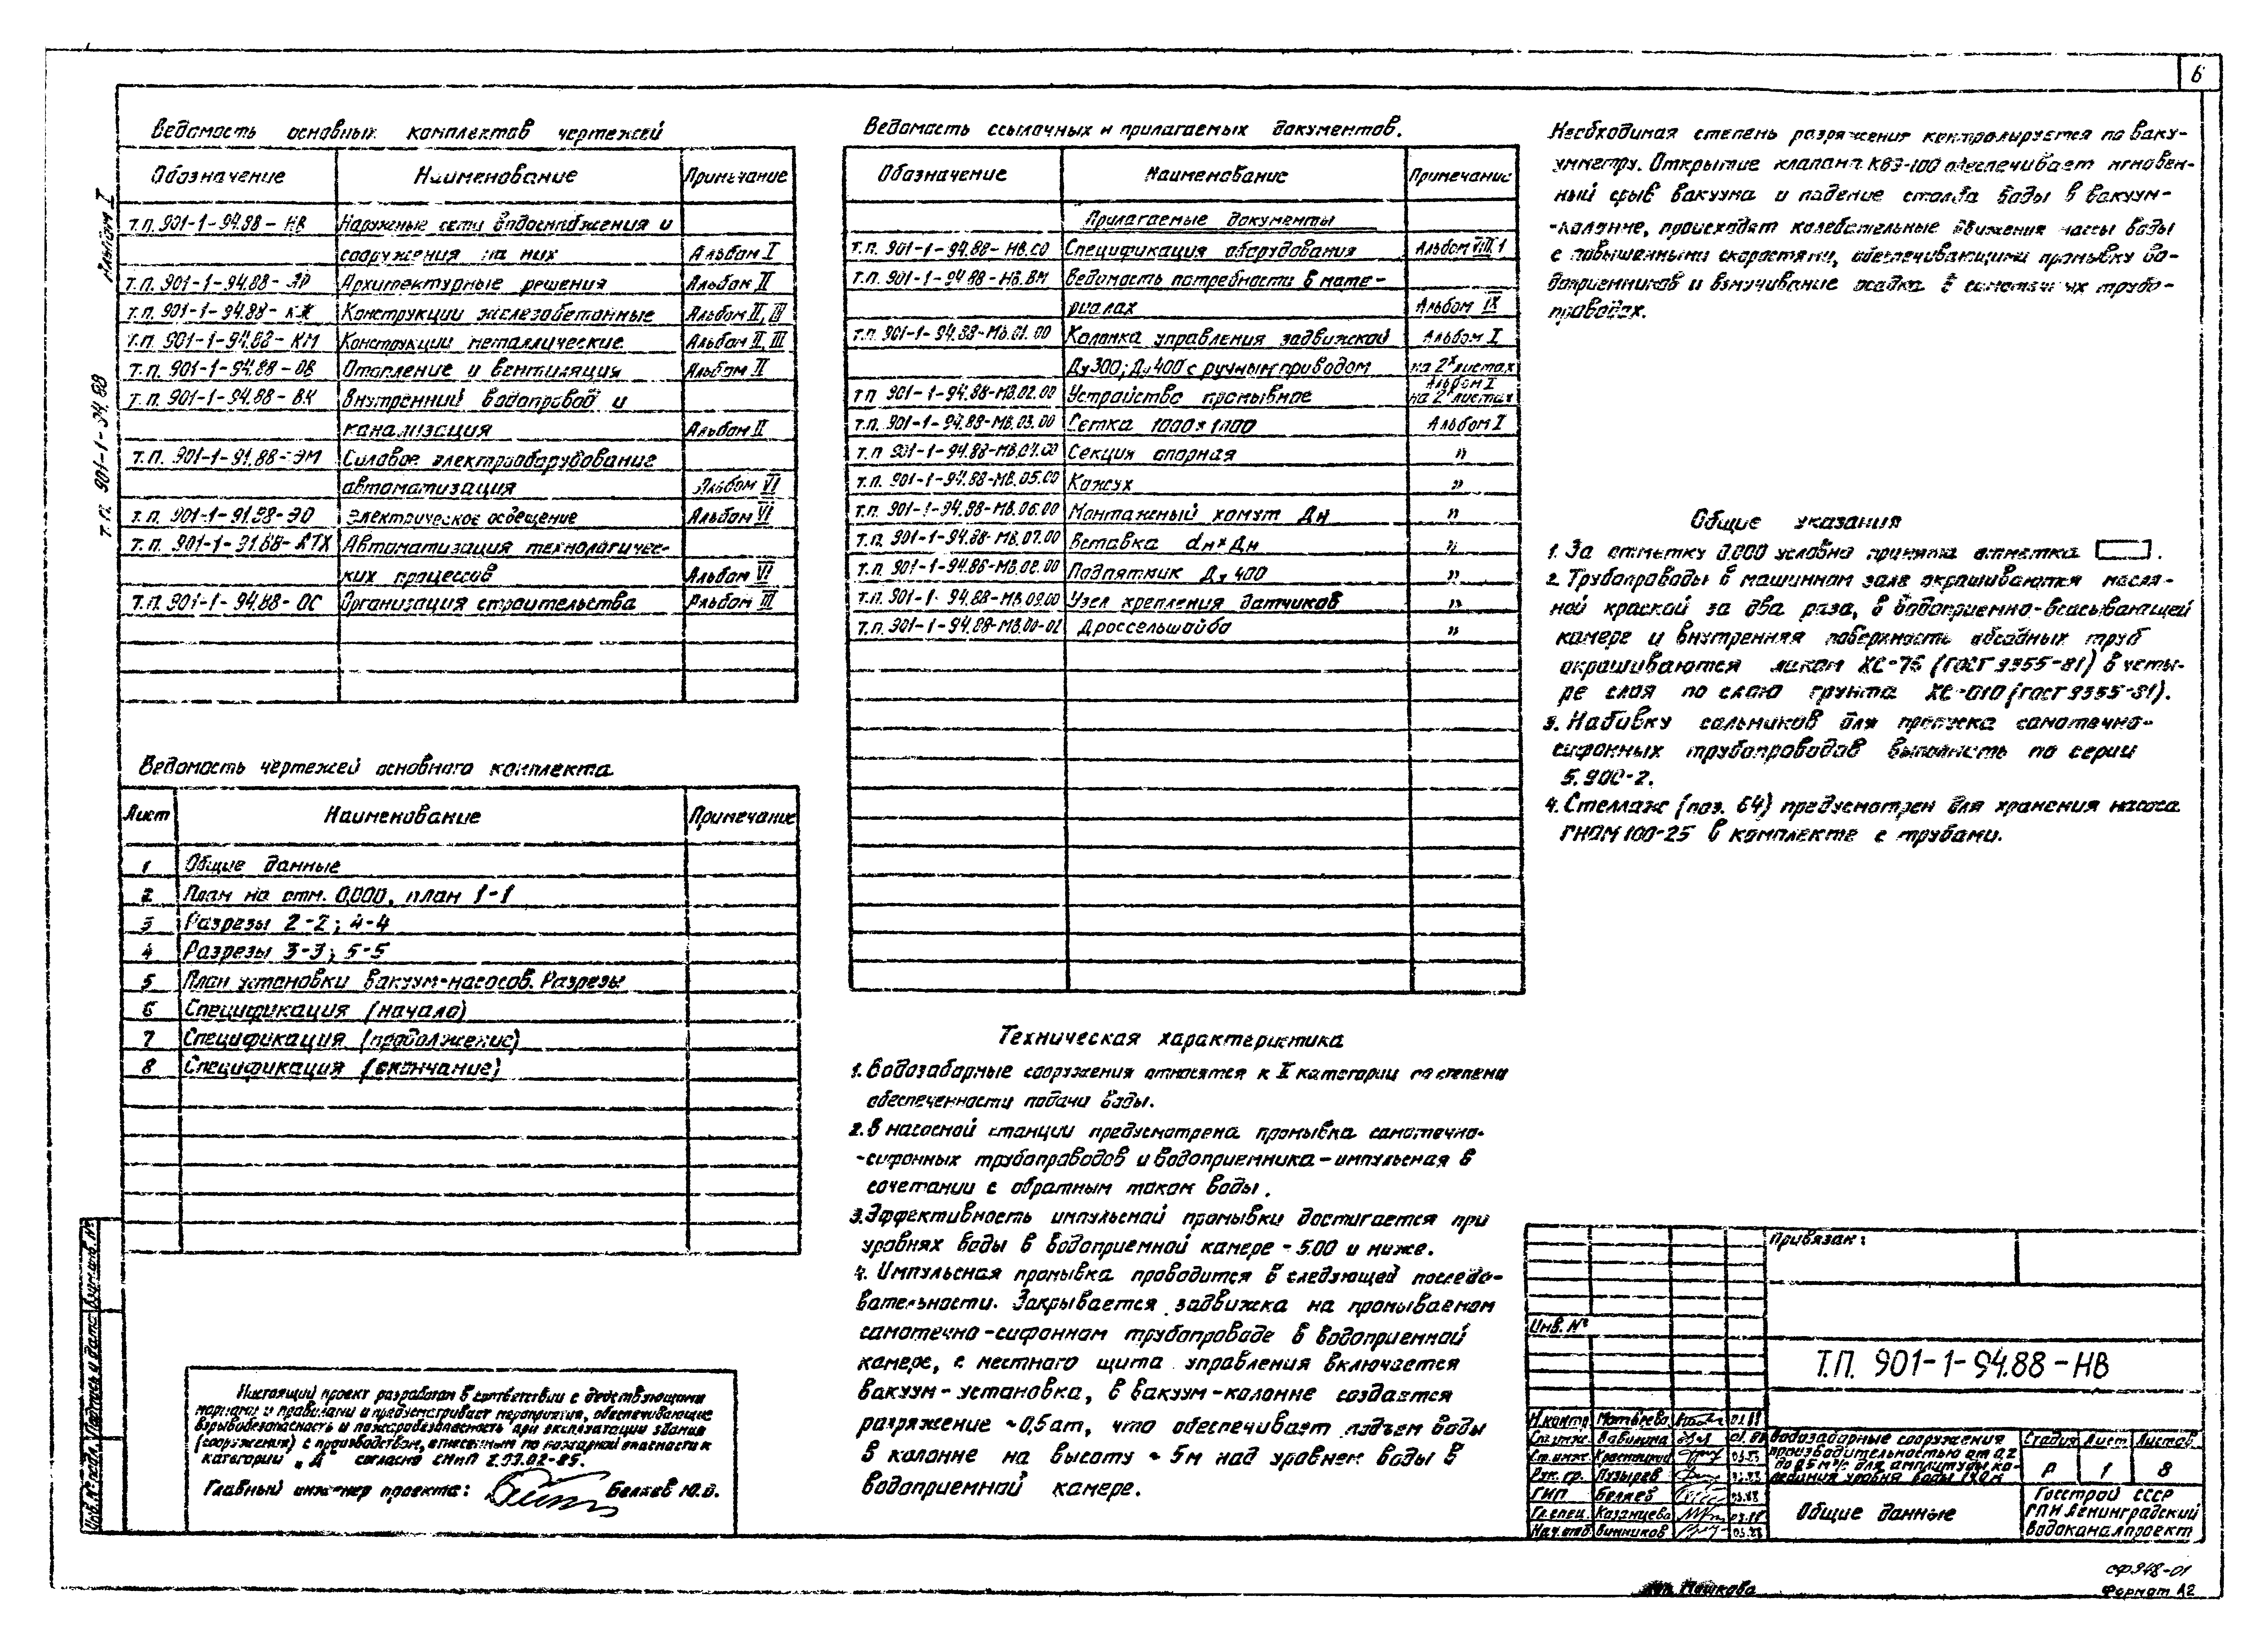 6
Альбом I
т.п. 901-1-94.88
Ведомость основных комплектов чертежей
Обозначение Наименование Примечание
т.п. 901-1-94.88-НВ Наружные сети водоснабжения и
сооружения на них Альбом I
т.п. 901-1-94.88-АР Архитектурные решения Альбом II
т.п. 901-1-94.88-КЖ Конструкции железобетонные Альбом II, III
т.п. 901-1-94.88-КМ Конструкции металлические Альбом II, III
т.п. 901-1-94.88-ОВ Отопление и вентиляция Альбом II
т.п. 901-1-94.88-ВК Внутренний водопровод и
канализация Альбом II
т.п. 901-1-91.88-ЭМ Силовое электрооборудование
автоматизация Альбом VI
т.п. 901-1-91.88-ЭО Электрическое освещение Альбом VI
т.п. 901-1-91.88-АТХ Автоматизация технологичес-
ких процессов Альбом VI
т.п. 901-1-94.88-ОС Организация строительства Альбом III
Ведомость чертежей основного комплекта
Лист Наименование Примечание
1 Общие данные
2 План на отм. 0,000, план 1-1
3 Разрезы 2-2; 4-4
4 Разрезы 3-3; 5-5
5 План установки вакуум-насосов. Разрезы
6 Спецификация (начало)
7 Спецификация (продолжение)
8 Спецификация (окончание)
Настоящий проект разработан в соответствии с действующими
нормами и правилами и предусматривает мероприятия, обеспечивающие
взрывобезопасность и пожаробезопасность при эксплуатации здания
(сооружения) с производством, отнесенным по пожарной опасности к
категории „Д" согласно СНиП 2.09.02-85.
Главный инженер проекта: Беляев Ю.В.
Ведомость ссылочных и прилагаемых документов.
Обозначение Наименование Примечание
Прилагаемые документы
т.п. 901-1-94.88-НВ.СО Спецификация оборудования Альбом VIII.1
т.п. 901-1-94.88-НВ.ВМ Ведомость потребности в мате-
риалах Альбом IX
т.п. 901-1-94.88-МВ.01.00 Колонка управления задвижкой Альбом I
Ду300; Ду400 с ручным приводом на 2х листах
т.п. 901-1-94.88-МВ.02.00 Устройство промывное Альбом I на 2х листах
т.п. 901-1-94.88-МВ.03.00 Сетка 1000×1000 Альбом I
т.п. 901-1-94.88-МВ.04.00 Секция опорная "
т.п. 901-1-94.88-МВ.05.00 Кожух "
т.п. 901-1-94.88-МВ.06.00 Монтажный хомут Дн "
т.п. 901-1-94.88-МВ.07.00 Вставка dн×Дн "
т.п. 901-1-94.88-МВ.08.00 Подпятник Ду 400 "
т.п. 901-1-94.88-МВ.09.00 Узел крепления датчиков "
т.п. 901-1-94.88-МВ.00-01 Дроссельшайба "
Техническая характеристика
1. Водозаборные сооружения относятся к II категории по степени
обеспеченности подачи воды.
2. В насосной станции предусмотрена промывка самотечно-
-сифонных трубопроводов и водоприемника-импульсная в
сочетании с обратным током воды.
3. Эффективность импульсной промывки достигается при
уровнях воды в водоприемной камере - 5.00 и ниже.
4. Импульсная промывка проводится в следующей последо-
вательности. Закрывается задвижка на промываемом
самотечно-сифонном трубопроводе в водоприемной
камере, с местного щита управления включается
вакуум-установка, в вакуум-колонне создается
разряжение ~0,5ат, что обеспечивает подъем воды
в колонне на высоту ≈ 5м над уровнем воды в
водоприемной камере.
Необходимая степень разряжения контролируется по ваку-
умметру. Открытие клапана КВЭ-100 обеспечивает мгновен-
ный срыв вакуума и падение столба воды в вакуум-
-колонне, происходят колебательные движения массы воды
с повышенными скоростями, обеспечивающими промывку во-
доприемников и взмучивание осадка в самотечных трубо-
проводах.
Общие указания
1. За отметку 0.000 условно принята отметка .
2. Трубопроводы в машинном зале окрашиваются масля-
ной краской за два раза, в водоприемно-всасывающей
камере и внутренняя поверхность обсадных труб
окрашиваются лаком ХС-76 (ГОСТ 9355-81) в четы-
ре слоя по слою грунта ХС-010 (ГОСТ 9355-81).
3. Набивку сальников для пропуска самотечно-
сифонных трубопроводов выполнить по серии
5.900-2.
4. Стеллаж (поз. 64) предусмотрен для хранения насоса
ГНОМ 100-25 в комплекте с трубами.
Привязан:
Инв. №
Т.П. 901-1-94.88-НВ
Н.контр. Матвеева
Ст.техн. Вавилина
Ст.инж.
Рук. гр. Пузырев
ГИП Беляев
Гл.спец. Казанцева
Нач.отд. Винников
Водозаборные сооружения
производительностью от 0,2
до 0,5 м³/с для амплитуды ко-
лебания уровня воды
Стадия Лист Листов
Р 1 8
Общие данные
Госстрой СССР
ГПИ Ленинградский
Водоканалпроект
Инв. № подл. Подпись и дата Взам. инв. №
Коп. Пашкова
сф 948-01
Формат А2